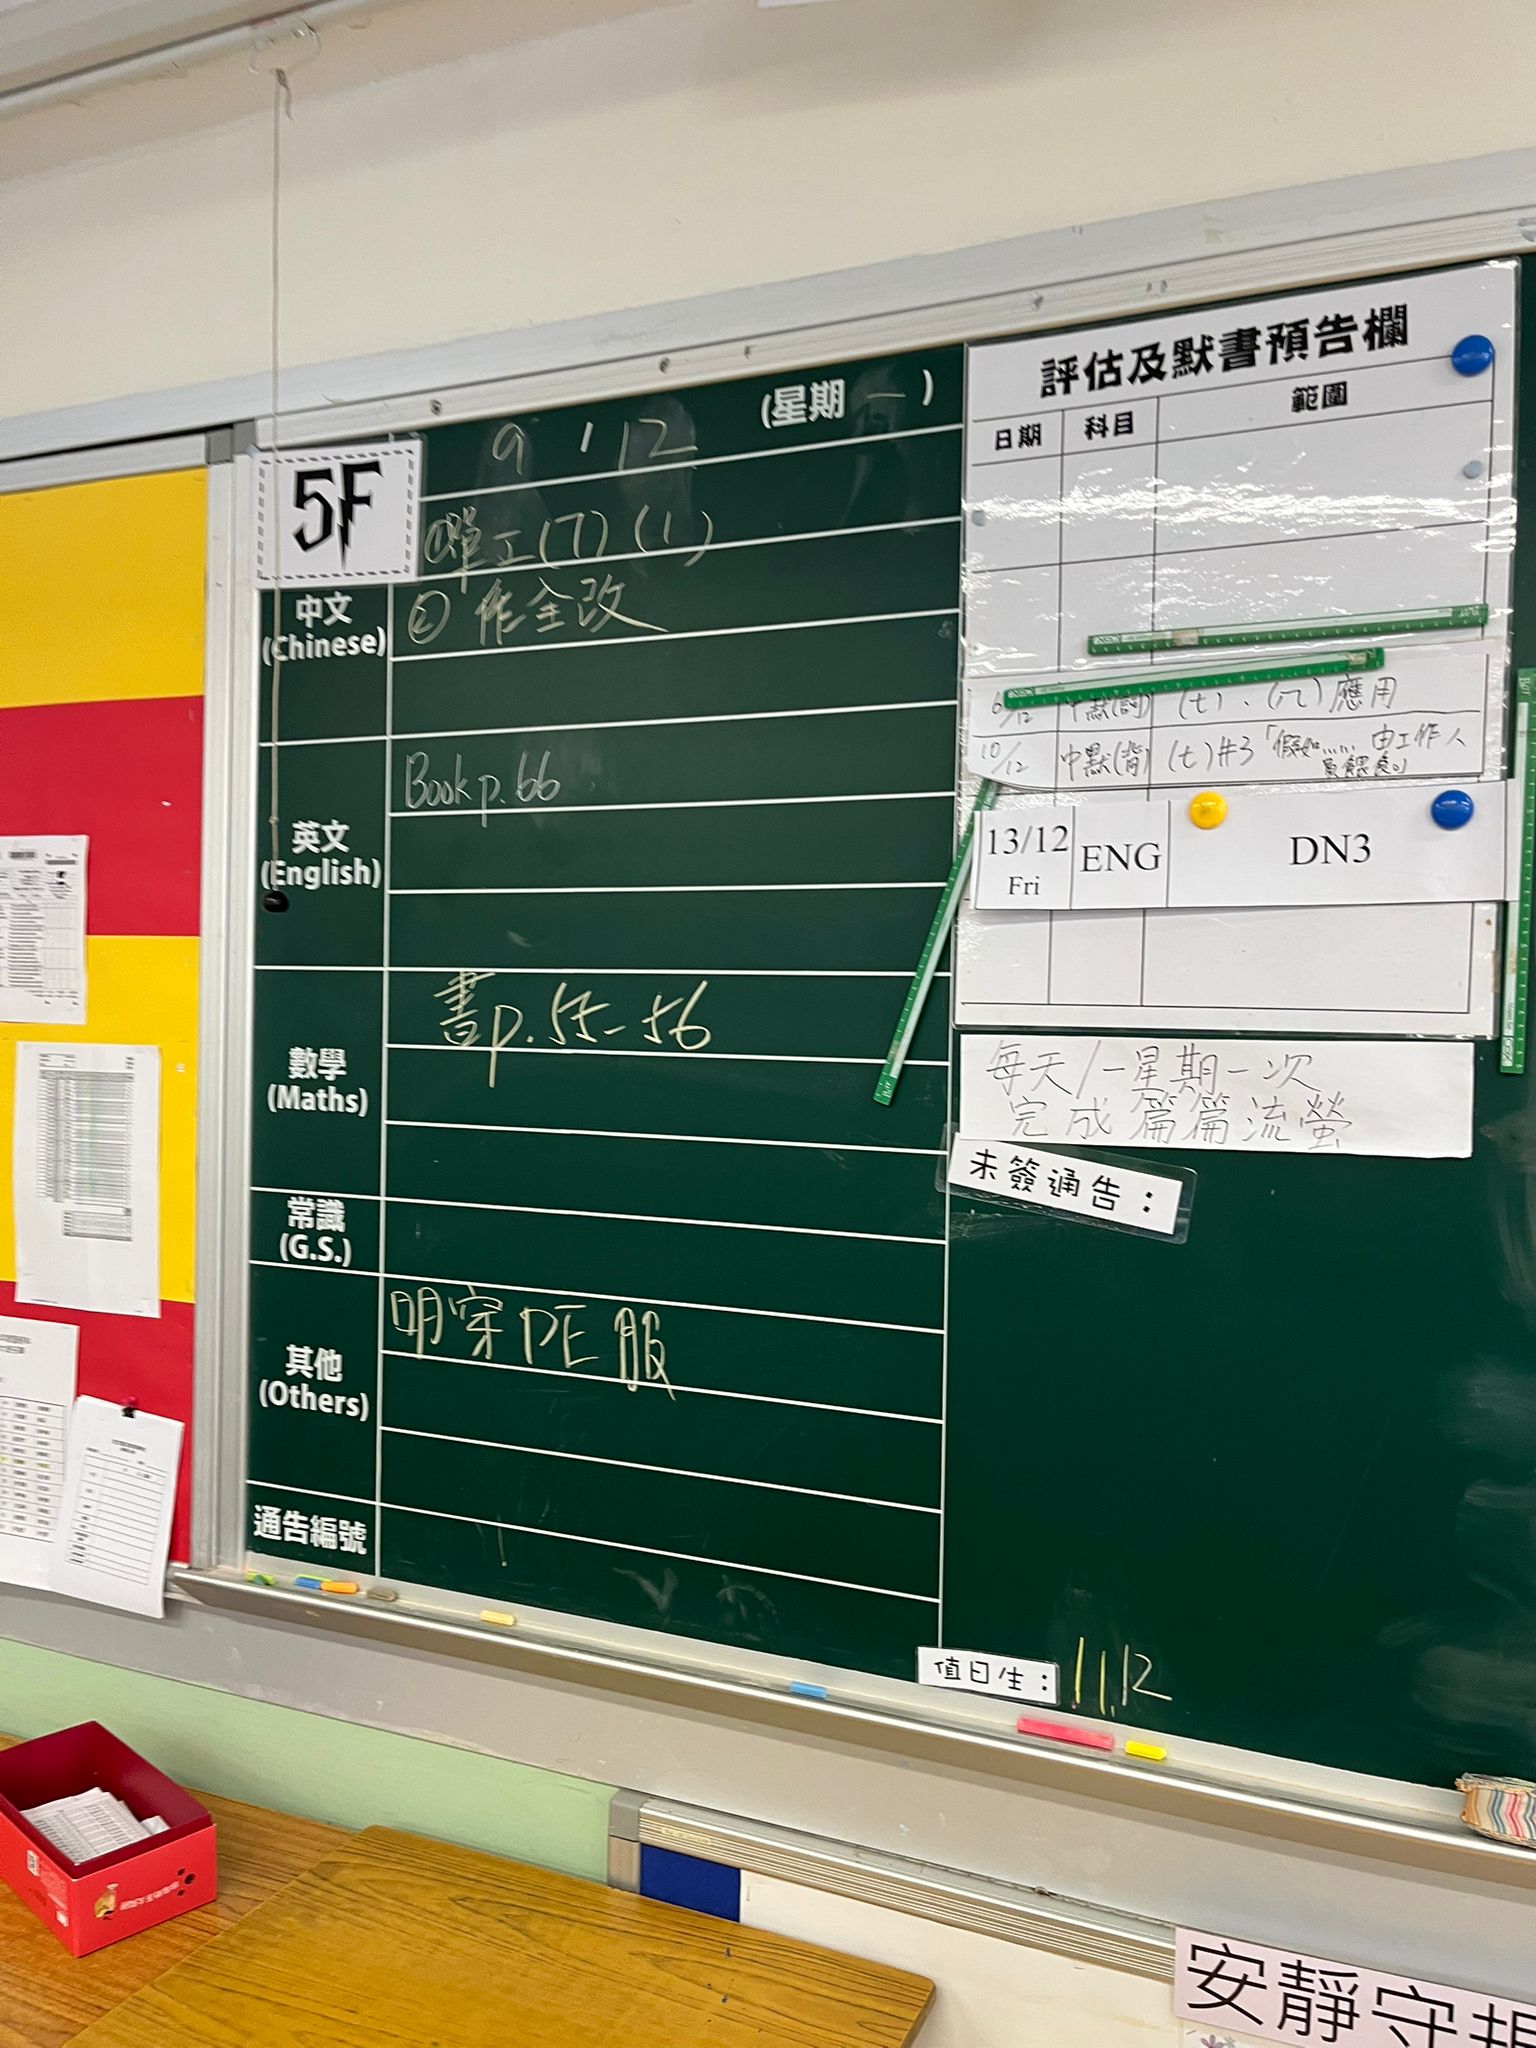 5F
9 / 12 (星期 一 )
中文
(Chinese)
①單工(7) (1)
② 作全改
英文
(English)
Book p.66
數學
(Maths)
書p.55-56
常識
(G.S.)
其他
(Others)
明穿PE服
通告編號
評估及默書預告欄
日期 科目 範圍
6/12 中默(詞) (七)、(八)應用
10/12 中默(背) (七)#3「假如…… 由工作人
員餵食。」
13/12
Fri
ENG DN3
每天/一星期一次
完成篇篇流螢
未簽通告:
值日生: 11,12
安靜守規